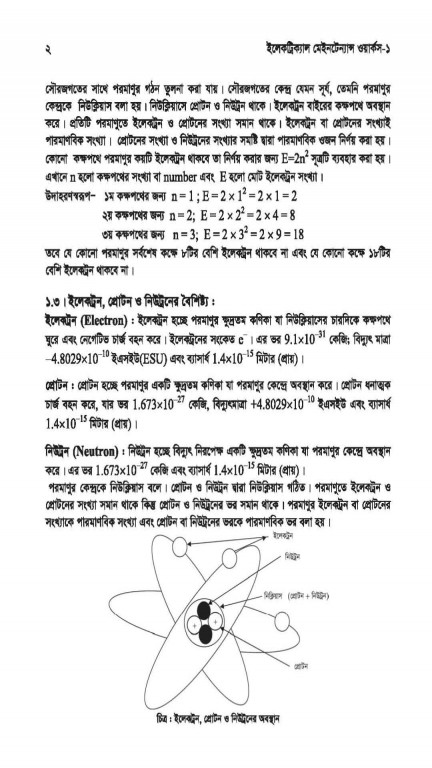 ২
ইলেকট্রিক্যাল মেইনটেন্যান্স ওয়ার্কস-১
সৌরজগতের সাথে পরমাণুর গঠন তুলনা করা যায়। সৌরজগতের কেন্দ্র যেমন সূর্য, তেমনি পরমাণুর
কেন্দ্রকে নিউক্লিয়াস বলা হয়। নিউক্লিয়াসে প্রোটন ও নিউট্রন থাকে। ইলেকট্রন বাইরের কক্ষপথে অবস্থান
করে। প্রতিটি পরমাণুতে ইলেকট্রন ও প্রোটনের সংখ্যা সমান থাকে। ইলেকট্রন বা প্রোটনের সংখ্যাই
পারমাণবিক সংখ্যা। প্রোটনের সংখ্যা ও নিউট্রনের সংখ্যার সমষ্টি দ্বারা পারমাণবিক ওজন নির্ণয় করা হয়।
কোনো কক্ষপথে পরমাণুর কয়টি ইলেকট্রন থাকবে তা নির্ণয় করার জন্য E=2n² সূত্রটি ব্যবহার করা হয়।
এখানে n হলো কক্ষপথের সংখ্যা বা number এবং E হলো মোট ইলেকট্রন সংখ্যা।
উদাহরণস্বরূপ- ১ম কক্ষপথের জন্য n = 1 ; E = 2 × 1² = 2 × 1 = 2
২য় কক্ষপথের জন্য n = 2; E = 2 × 2² = 2 × 4 = 8
৩য় কক্ষপথের জন্য n = 3; E = 2 × 3² = 2 × 9 = 18
তবে যে কোনো পরমাণুর সর্বশেষ কক্ষে ৮টির বেশি ইলেকট্রন থাকবে না এবং যে কোনো কক্ষে ১৮টির
বেশি ইলেকট্রন থাকবে না।
১.৩। ইলেকট্রন, প্রোটন ও নিউট্রনের বৈশিষ্ট্য :
ইলেকট্রন (Electron) : ইলেকট্রন হচ্ছে পরমাণুর ক্ষুদ্রতম কণিকা যা নিউক্লিয়াসের চারদিকে কক্ষপথে
ঘুরে এবং নেগেটিভ চার্জ বহন করে। ইলেকট্রনের সংকেত e⁻। এর ভর 9.1×10⁻³¹ কেজি; বিদ্যুৎ মাত্রা
–4.8029×10⁻¹⁰ ইএসইউ(ESU) এবং ব্যাসার্ধ 1.4×10⁻¹⁵ মিটার (প্রায়)।
প্রোটন : প্রোটন হচ্ছে পরমাণুর একটি ক্ষুদ্রতম কণিকা যা পরমাণুর কেন্দ্রে অবস্থান করে। প্রোটন ধনাত্মক
চার্জ বহন করে, যার ভর 1.673×10⁻²⁷ কেজি, বিদ্যুৎমাত্রা +4.8029×10⁻¹⁰ ইএসইউ এবং ব্যাসার্ধ
1.4×10⁻¹⁵ মিটার (প্রায়)।
নিউট্রন (Neutron) : নিউট্রন হচ্ছে বিদ্যুৎ নিরপেক্ষ একটি ক্ষুদ্রতম কণিকা যা পরমাণুর কেন্দ্রে অবস্থান
করে। এর ভর 1.673×10⁻²⁷ কেজি এবং ব্যাসার্ধ 1.4×10⁻¹⁵ মিটার (প্রায়)।
পরমাণুর কেন্দ্রকে নিউক্লিয়াস বলে। প্রোটন ও নিউট্রন দ্বারা নিউক্লিয়াস গঠিত। পরমাণুতে ইলেকট্রন ও
প্রোটনের সংখ্যা সমান থাকে কিন্তু প্রোটন ও নিউট্রনের ভর সমান থাকে। পরমাণুর ইলেকট্রন বা প্রোটনের
সংখ্যাকে পারমাণবিক সংখ্যা এবং প্রোটন বা নিউট্রনের ভরকে পারমাণবিক ভর বলা হয়।
ইলেকট্রন
নিউট্রন
নিক্লিয়াস (প্রোটন + নিউট্রন)
+
+
প্রোটন
চিত্র : ইলেকট্রন, প্রোটন ও নিউট্রনের অবস্থান